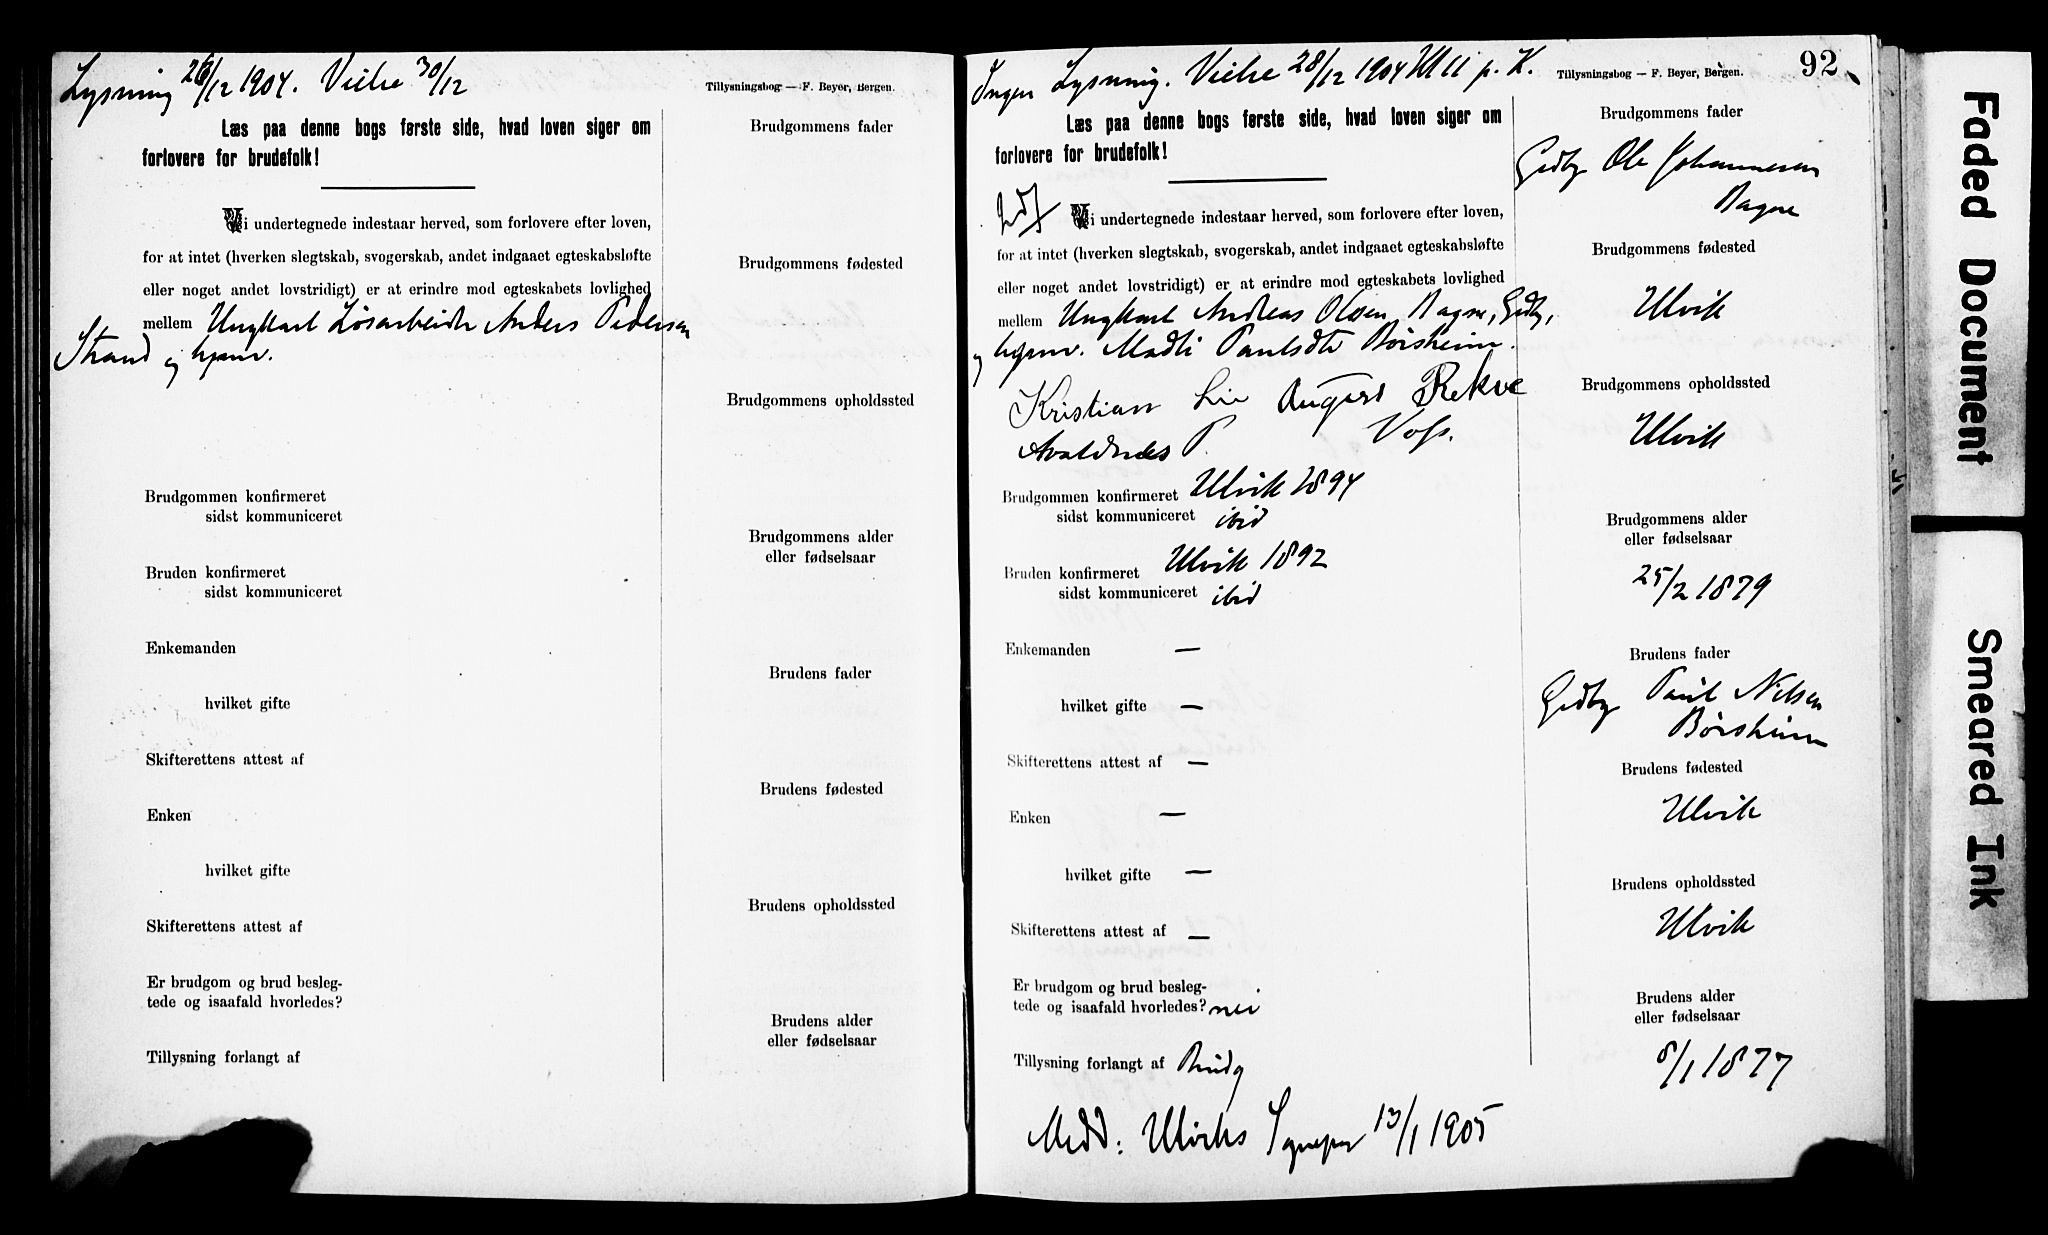 Lysning 26/12 1904. Vielse 30/12
Tillysningsbog — F. Beyer, Bergen.
Læs paa denne bogs første side, hvad loven siger om
forlovere for brudefolk!
Vi undertegnede indestaar herved, som forlovere efter loven,
for at intet (hverken slegtskab, svogerskab, andet indgaaet egteskabsløfte
eller noget andet lovstridigt) er at erindre mod egteskabets lovlighed
mellem Ungkarl Løsarbeider Anders Pedersen
Strand og hjemv.
Brudgommen konfirmeret
sidst kommuniceret
Bruden konfirmeret
sidst kommuniceret
Enkemanden
hvilket gifte
Skifterettens attest af
Enken
hvilket gifte
Skifterettens attest af
Er brudgom og brud besleg-
tede og isaafald hvorledes?
Tillysning forlangt af
Brudgommens fader
Brudgommens fødested
Brudgommens opholdssted
Brudgommens alder
eller fødselsaar
Brudens fader
Brudens fødested
Brudens opholdssted
Brudens alder
eller fødselsaar
Ingen Lysning. Vielse 28/12 1904 Kl 11 p. K.
Tillysningsbog — F. Beyer, Bergen.
92
Læs paa denne bogs første side, hvad loven siger om
forlovere for brudefolk!
Vi undertegnede indestaar herved, som forlovere efter loven,
for at intet (hverken slegtskab, svogerskab, andet indgaaet egteskabsløfte
eller noget andet lovstridigt) er at erindre mod egteskabets lovlighed
mellem Ungkarl Andreas Olsen Bagne, Grdbr,
og hjemv. Madli Paulsdtr Børsheim.
Kristian Lie August Rekve
Avaldsnes P. Voss.
Brudgommen konfirmeret Ulvik 1894
sidst kommuniceret ibid
Bruden konfirmeret Ulvik 1892
sidst kommuniceret ibid
Enkemanden —
hvilket gifte —
Skifterettens attest af —
Enken —
hvilket gifte —
Skifterettens attest af —
Er brudgom og brud besleg-
tede og isaafald hvorledes? nei
Tillysning forlangt af Brudg
Medd. Ulviks Sognepr 13/1 1905
Brudgommens fader
Grdbr Ole Johannesen
Bagne
Brudgommens fødested
Ulvik
Brudgommens opholdssted
Ulvik
Brudgommens alder
eller fødselsaar
25/2 1879
Brudens fader
Grdbr Paul Nilsen
Børsheim
Brudens fødested
Ulvik
Brudens opholdssted
Ulvik
Brudens alder
eller fødselsaar
8/1 1877
Faded Document
Smeared Ink